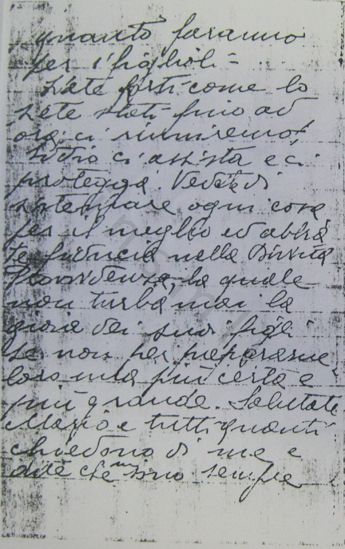 quanto faranno
per i figlioli =
siate forti come lo
siete stati fino ad
ora, ci riuniremo,
Iddio ci assista e ci
protegga. Vedete di
sistemare ogni cosa
per il meglio ed abbia
te fiducia nella Divina
Provvidenza, la quale
non turba mai la
gioia dei suoi figli
se non per preparare
loro una più certa e
più grande. Salutate
Mario e tutti quanti
chiedono di me e
dite che sono sempre